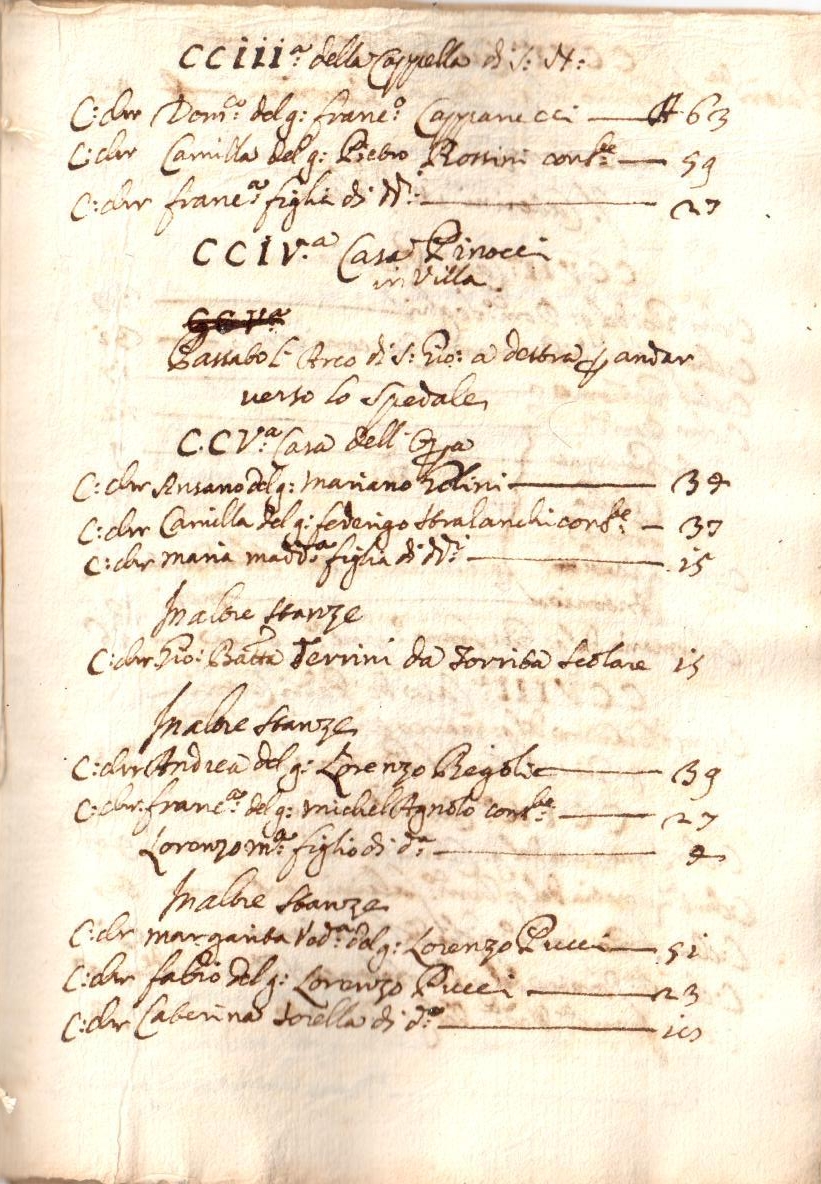 CCiii.ª della Cappella di S: M:
C: chr Dom.co del q: Franc.o Cappanecci — 63
C: chr Camilla del q: Pietro Rossini cons.te — 59
C: chr Franc.ª figlia di dd.i — 27
CCiV.ª Casa Pinocci
in Villa
CCV.ª
Passato l'Arco di S: Gio: a destra p andar
verso lo Spedale
CCV.ª Casa dell'Opa
C: chr Ansano del q: Mariano — 34
C: chr Camilla del q: Federigo cons.te — 37
C: chr Maria Madd.ª figlia di dd.i — 15
In altre stanze
C: chr Gio: Batta Terrini da Torrita Scolare 15
In altre stanze
C: chr Andrea del q: Lorenzo Regoli — 39
C: chr Franc.ª del q: Michel Agnolo cons.te — 27
Lorenzo M.ª figlio di d.ª — 4
In altre stanze
C: chr Margarita Ved.ª del q: Lorenzo Pucci — 51
C: chr Fabio del q: Lorenzo Pucci — 23
C: chr Caterina sorella di d.o —